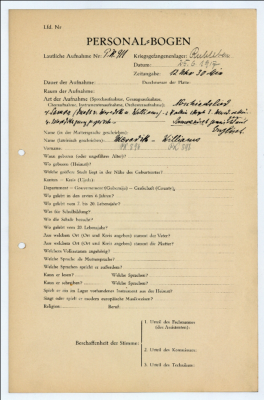 Lfd. Nr
PERSONAL-BOGEN
Lautliche Aufnahme Nr.
Kriegsgefangenenlager: Ruhleben
Datum: 25.6.1917
Zeitangabe: 12 Uhr 30 Min
Dauer der Aufnahme:
Durchmesser der Platte:
Raum der Aufnahme:
Art der Aufnahme (Sprechaufnahme, Gesangsaufnahme,
Choraufnahme, Instrumentenaufnahme, Orchesteraufnahme):
Name (in der Muttersprache geschrieben):
Name (lateinisch geschrieben): Williams
Vorname:
Wann geboren (oder ungefähres Alter)?
Wo geboren (Heimat)?
Welche größere Stadt liegt in der Nähe des Geburtsortes?
Kanton — Kreis (Ujedu):
Departement — Gouvernement (Gubernija) — Grafschaft (County):
Wo gelebt in den ersten 6 Jahren?
Wo gelebt vom 7 bis 20. Lebensjahr?
Was für Schulbildung?
Wo die Schule besucht?
Wo gelebt vom 20. Lebensjahr?
Aus welchem Ort (Ort und Kreis angeben) stammt der Vater?
Aus welchem Ort (Ort und Kreis angeben) stammt die Mutter?
Welchem Volksstamm angehörig?
Welche Sprache als Muttersprache?
Welche Sprachen spricht er außerdem?
Kann er lesen? Welche Sprachen?
Kann er schreiben? Welche Sprachen?
Spielt er ein im Lager vorhandenes Instrument aus der Heimat?
Singt oder spielt er modern europäische Musikweisen?
Religion: Beruf:
Beschaffenheit der Stimme:
1. Urteil des Fachmannes:
(des Assistenten):
2. Urteil des Kommissars:
3. Urteil des Technikers: